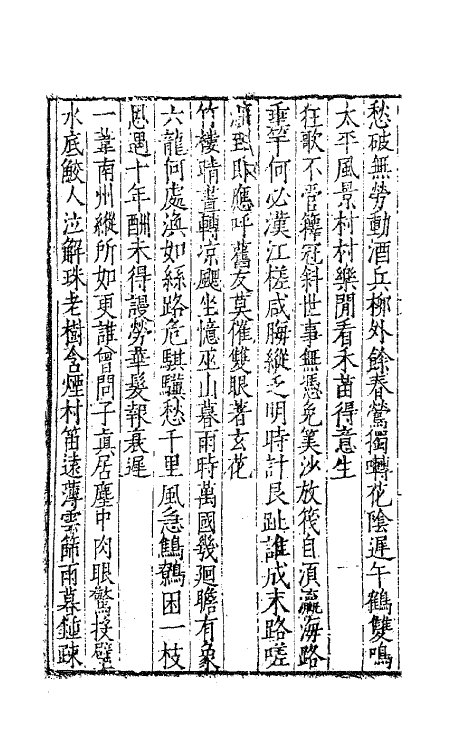 愁破無勞動酒兵柳外餘春鶯獨囀花陰遲午鶴雙鳴
太平風景村村樂閒看禾苗得意生
狂歌不管籜冠斜世事無憑兔美沙放筏自須瀛海路
垂竿何必漢江槎咸脢縱乏明時計艮趾誰成末路嗟
到即應呼舊友莫催雙眼著玄花
竹樓晴晝轉凉颸坐憶巫山暮雨時萬國幾廻瞻有象
六龍何處渙如絲路危騏驥愁千里風急鷦鷯困一枝
恩遇十年酬未得謾勞華髮報衰遲
一葦南州縱所如更誰曾問子真居塵中肉眼驚投璧
水底鮫人泣解珠老樹含煙村笛遠薄雲篩雨暮鍾疎